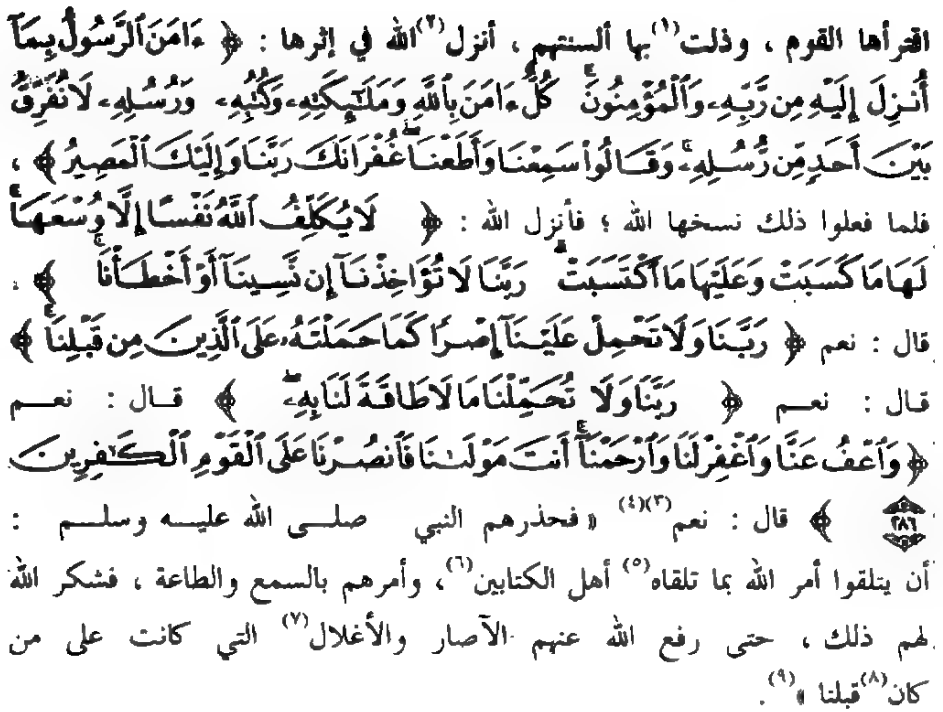 اقترأها القوم ، وذلت(١) بها ألسنتهم ، أنزل(٢) الله في إثرها : ﴿ ءَامَنَ ٱلرَّسُولُ بِمَآ
أُنزِلَ إِلَيْهِ مِن رَّبِّهِۦ وَٱلْمُؤْمِنُونَۚ كُلٌّ ءَامَنَ بِٱللَّهِ وَمَلَٰٓئِكَتِهِۦ وَكُتُبِهِۦ وَرُسُلِهِۦ لَا نُفَرِّقُ
بَيْنَ أَحَدٍ مِّن رُّسُلِهِۦۚ وَقَالُوا۟ سَمِعْنَا وَأَطَعْنَاۖ غُفْرَانَكَ رَبَّنَا وَإِلَيْكَ ٱلْمَصِيرُ ﴾ ،
فلما فعلوا ذلك نسخها الله ؛ فأنزل الله : ﴿ لَا يُكَلِّفُ ٱللَّهُ نَفْسًا إِلَّا وُسْعَهَاۚ
لَهَا مَا كَسَبَتْ وَعَلَيْهَا مَا ٱكْتَسَبَتْۗ رَبَّنَا لَا تُؤَاخِذْنَآ إِن نَّسِينَآ أَوْ أَخْطَأْنَاۚ ﴾ .
قال : نعم ﴿ رَبَّنَا وَلَا تَحْمِلْ عَلَيْنَآ إِصْرًا كَمَا حَمَلْتَهُۥ عَلَى ٱلَّذِينَ مِن قَبْلِنَاۚ ﴾
قال : نعم ﴿ رَبَّنَا وَلَا تُحَمِّلْنَا مَا لَا طَاقَةَ لَنَا بِهِۦۖ ﴾ قال : نعم
﴿ وَٱعْفُ عَنَّا وَٱغْفِرْ لَنَا وَٱرْحَمْنَآۚ أَنتَ مَوْلَىٰنَا فَٱنصُرْنَا عَلَى ٱلْقَوْمِ ٱلْكَٰفِرِينَ
٢٨٦ ﴾ قال : نعم(٣)(٤) « فحذرهم النبي صلى الله عليه وسلم :
أن يتلقوا أمر الله بما تلقاه(٥) أهل الكتابين(٦)، وأمرهم بالسمع والطاعة ، فشكر الله
لهم ذلك ، حتى رفع الله عنهم الآصار والأغلال(٧) التي كانت على من
كان(٨) قبلنا »(٩) .